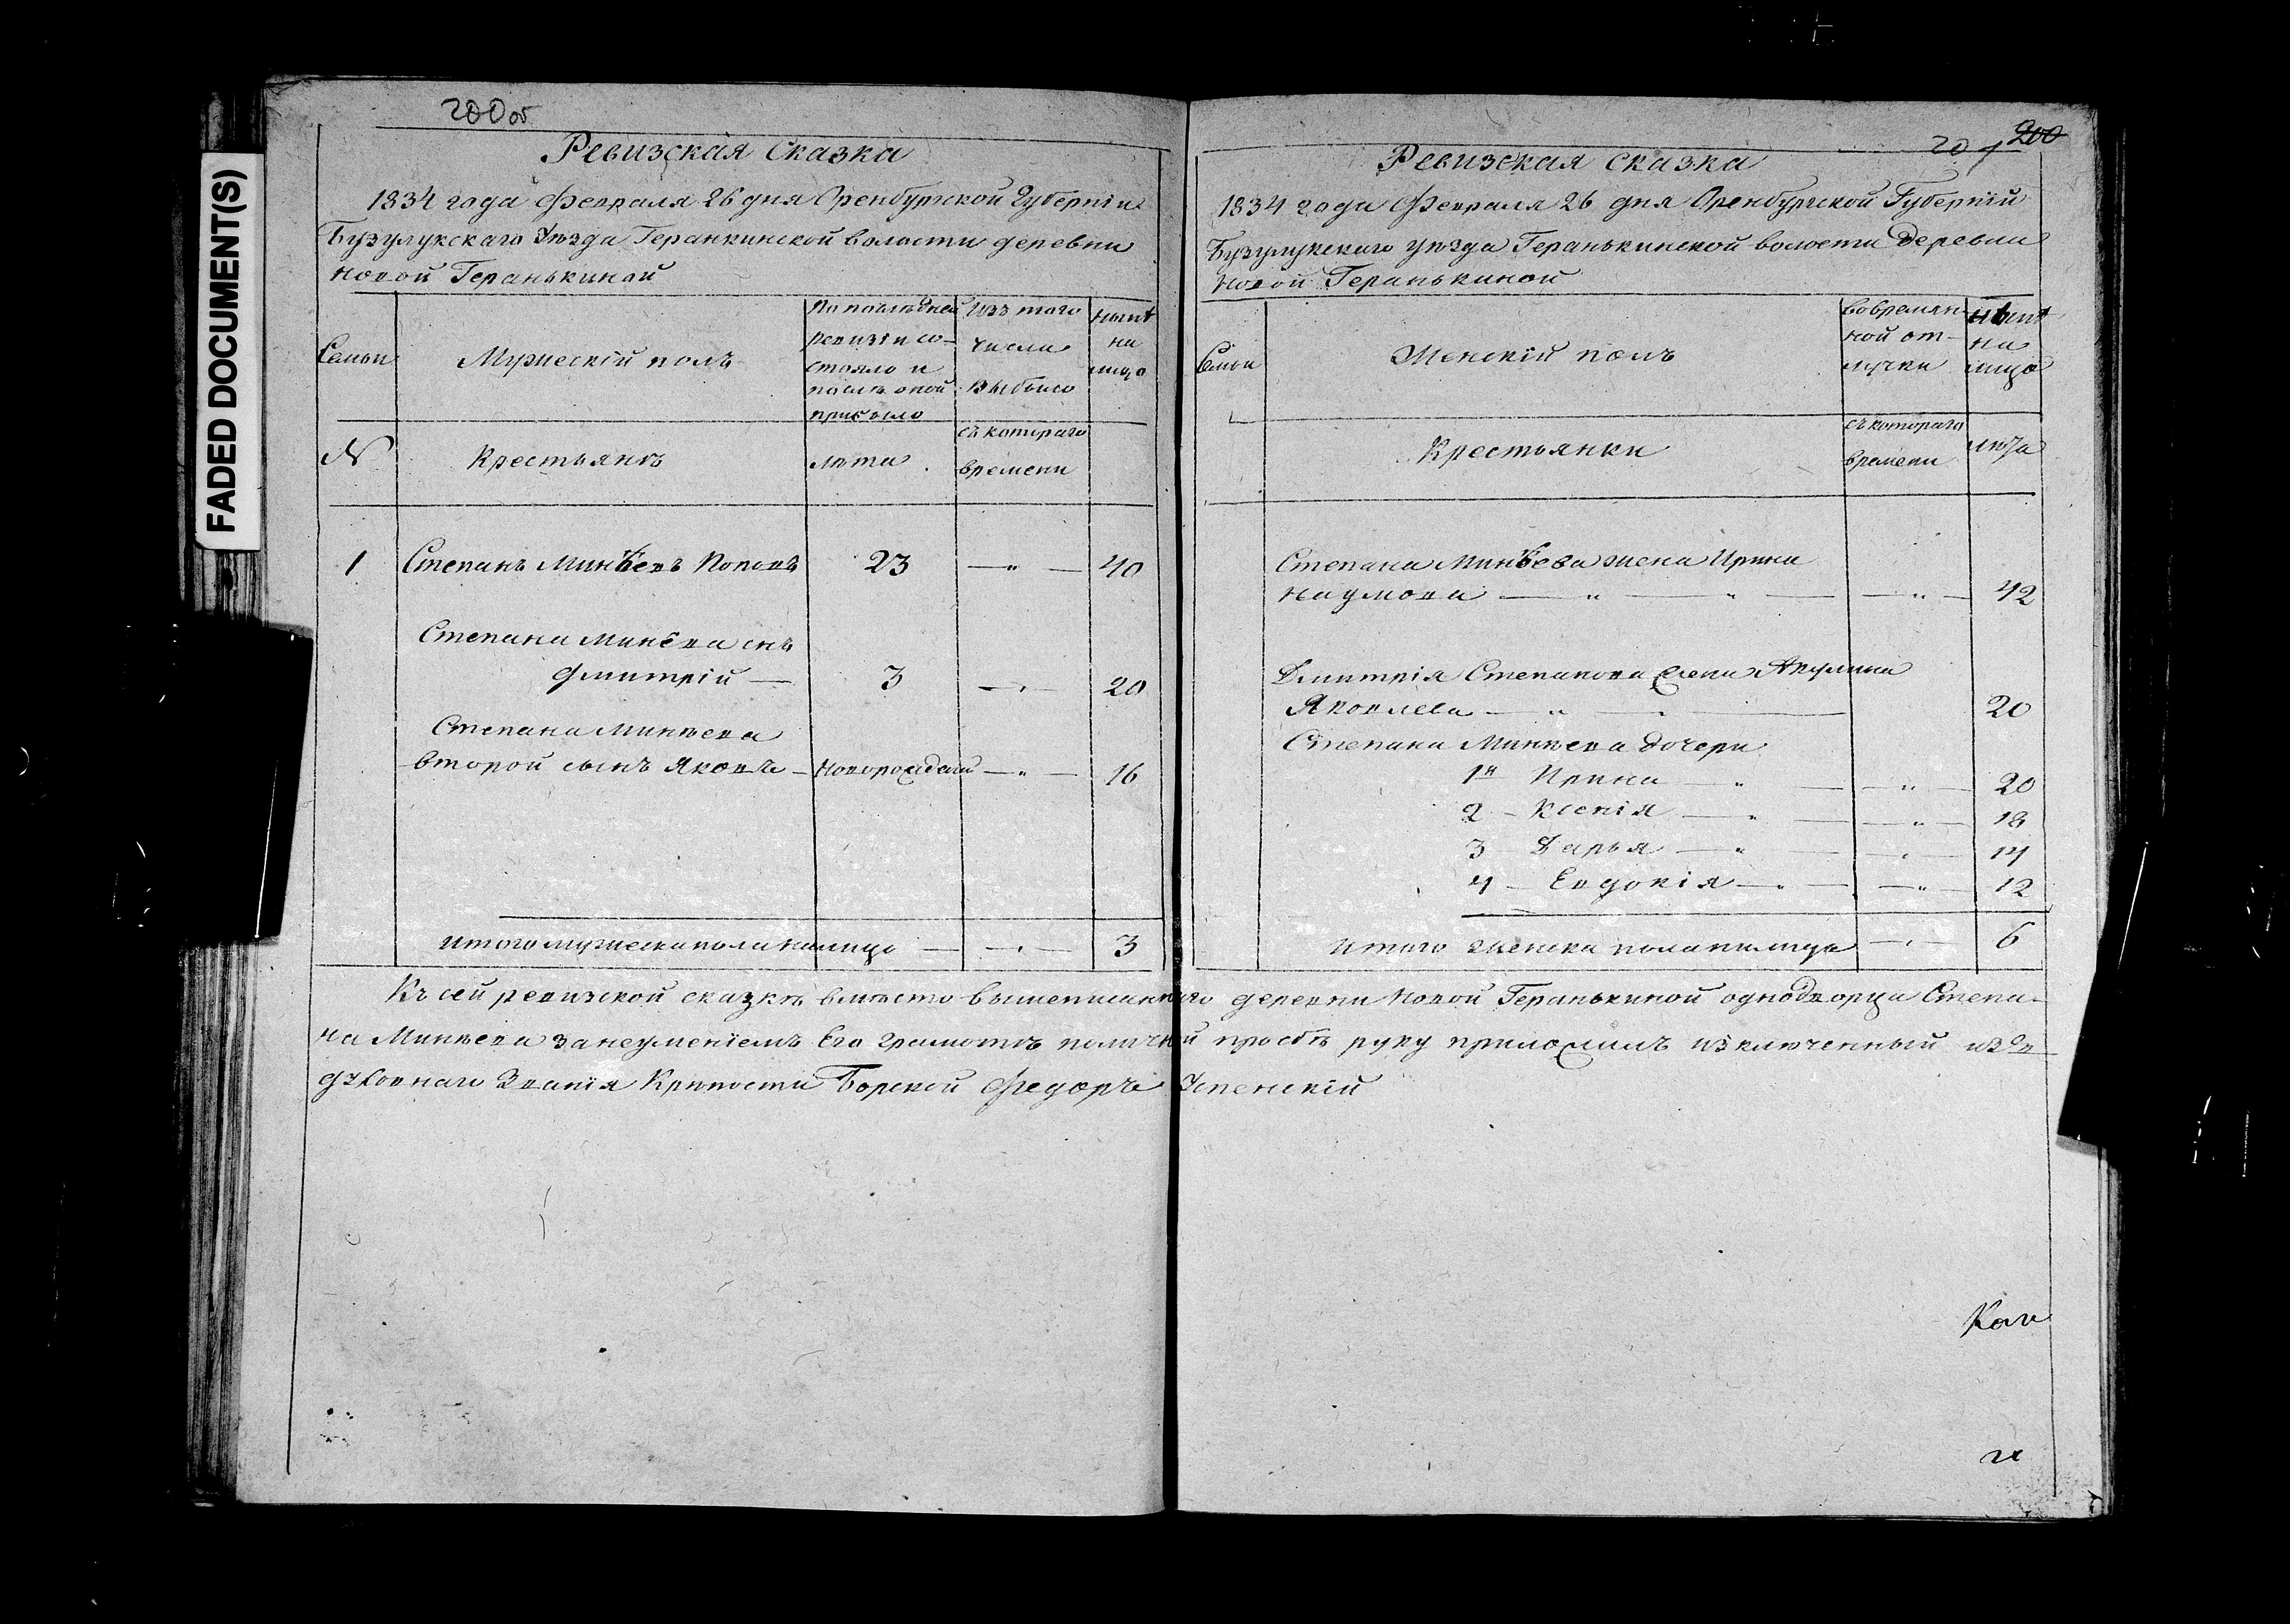 FADED DOCUMENT(S)
200 об
Ревизская Сказка
1834 года Февраля 26 дня Оренбургской Губерніи
Бузулукскаго Уѣзда Геранкинской волости деревни
Новой Геранькиной
Семьи
Мужескій полъ
По послѣдней
ревизіи со-
стояло и
послѣ оной
прибыло
Изъ того
числа
выбыло
нынѣ
на
лицо
№
Крестьянъ
лѣта
съ котораго
времени
1 Степанъ Минѣевъ Поповъ 23 — " — 40
Степана Минѣева снъ
Дмитрій — 3 — " — 20
Степана Минѣева
второй сынъ Яковъ — Новорожденный — " — 16
Итого мужеска пола налицо — — " — 3
201 200
Ревизская Сказка
1834 года Февраля 26 дня Оренбургской Губерніи
Бузулукскаго уѣзда Геранькинской волости деревни
Новой Геранькиной
Семьи
Женскій полъ
Во времян-
ной от-
лучки
нынѣ
на
лицо
Крестьянки
съ котораго
времени
лѣта
Степана Минѣева жена Ирина
Наумова — " — " — — " — 42
Дмитрія Степанова жена Акулина
Яковлева — " — " — 20
Степана Минѣева дочери
1я Ирина — " — — " — 20
2 – Ксенія — " — — " — 18
3 Дарья — " — — " — 14
4 – Евдокія — " — — " — 12
Итого женска пола налицо — " — 6
Къ сей ревизской сказкѣ вмѣсто вышеписаннаго деревни Новой Геранькиной однодворца Степа-
на Минѣева за неуменіемъ Его грамотѣ по личной прозбѣ руку приложилъ изключенный изъ
духовнаго Званія Крѣпости Борской Федоръ Успенскій